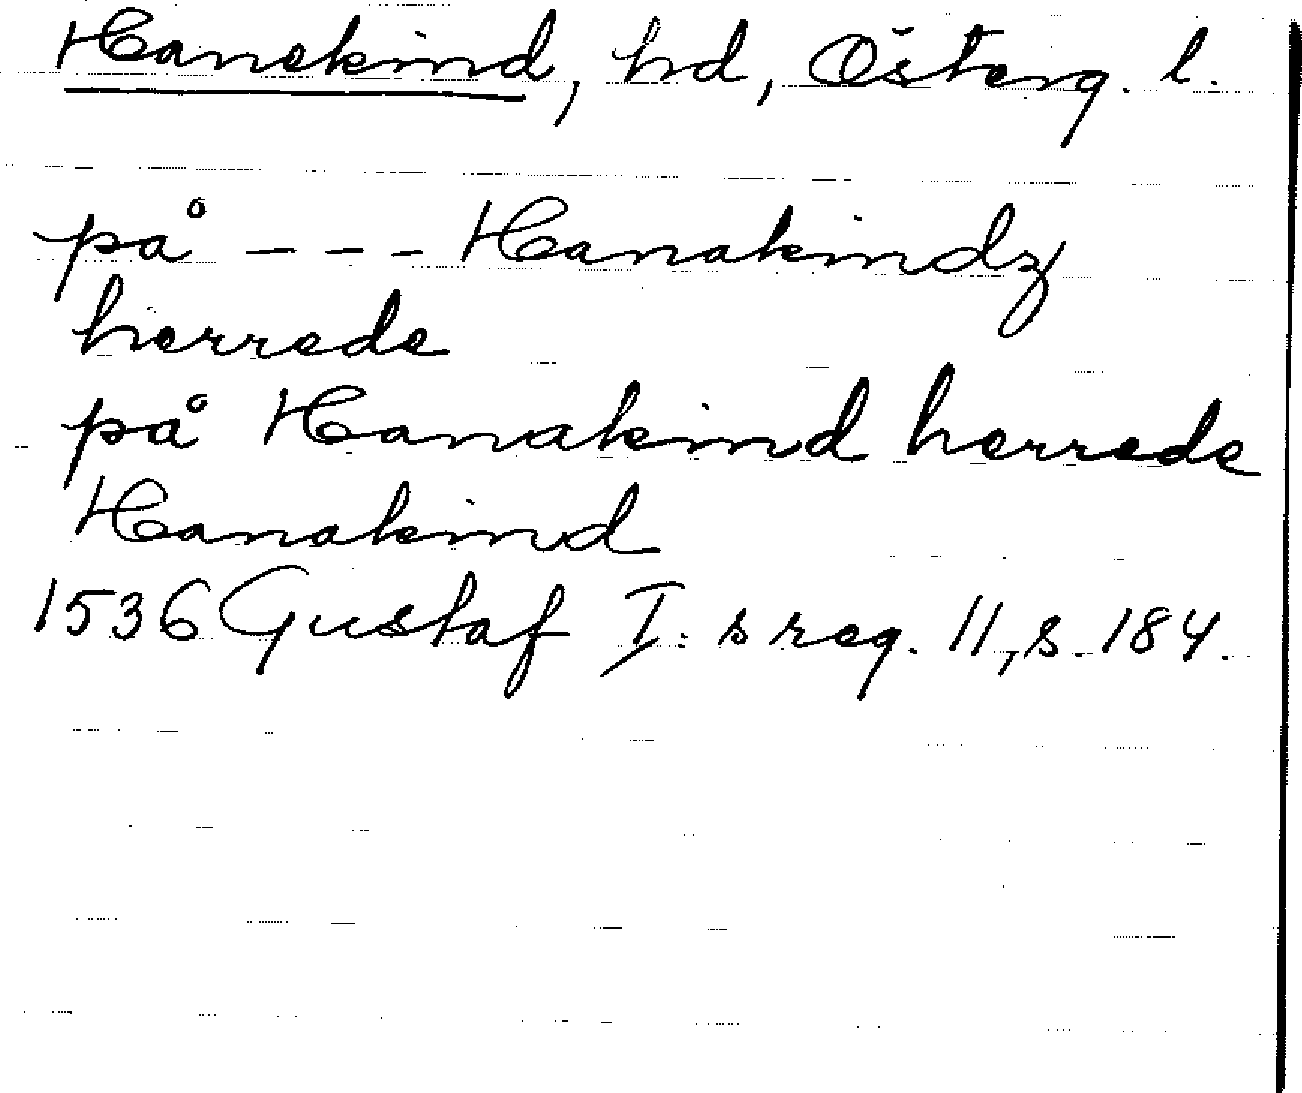 Hanekind, hd, Österg. l.
på - - - Hanakindz
herrede
på Hanakind herrede
Hanakind
1536 Gustaf I:s reg. 11, s. 184.